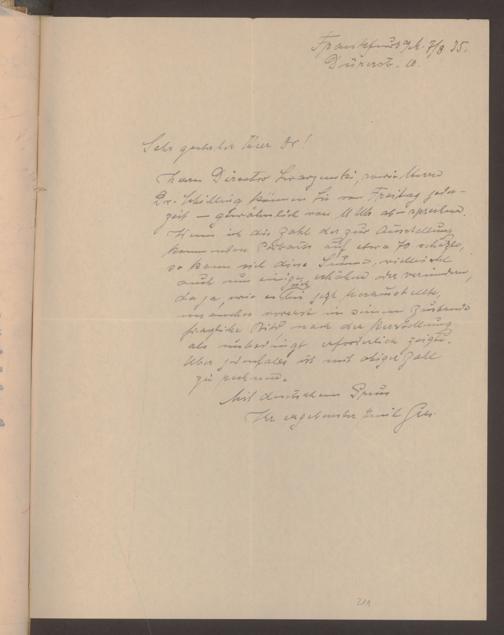 Frankfurt a/M. 7/8 35.
Dürerstr. 10.
Sehr geehrter Herr Dr!
Herrn Director Swarzenski, sowie Herrn
Dr. Schilling können Sie von Freitag jeder-
zeit – gewöhnlich von 11 Uhr ab – sprechen.
Wenn ich die Zahl der zur Ausstellung
kommenden auf etwa 70 schätzte,
so kann sich diese Summe, vielleicht
auch um einige erhöhen oder vermindern,
da ja, wie es sich jetzt herausstellte,
manches vorerst in seinem Zustand
fragliche Bild, nach der Herstellung
als unbedingt erforderlich zeigte.
Aber jedenfalls ist mit obiger Zahl
zu rechnen.
Mit deutschem Gruss
Ihr ergebenster
211